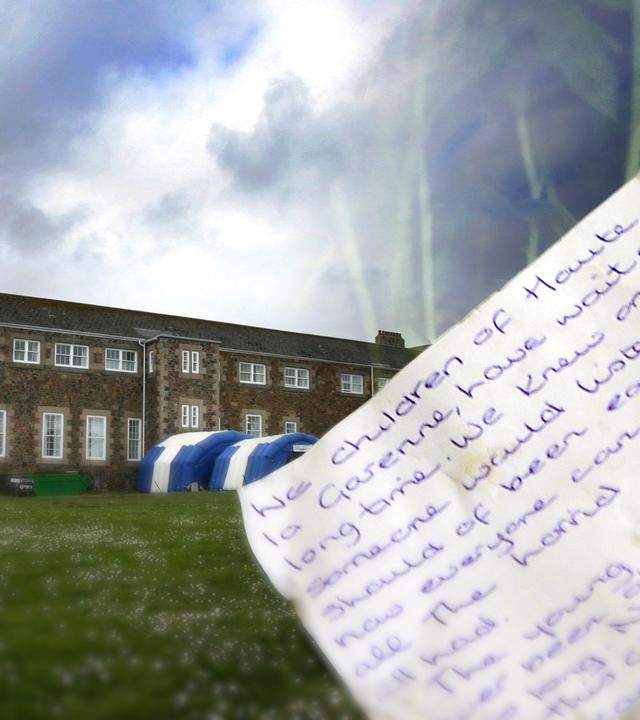 We children of Haute
la Garenne, have wait
long time. We knew on
someone would liste
should of been ea
now everyone can
all the horrid
all had.
The young
er been
so long.
this